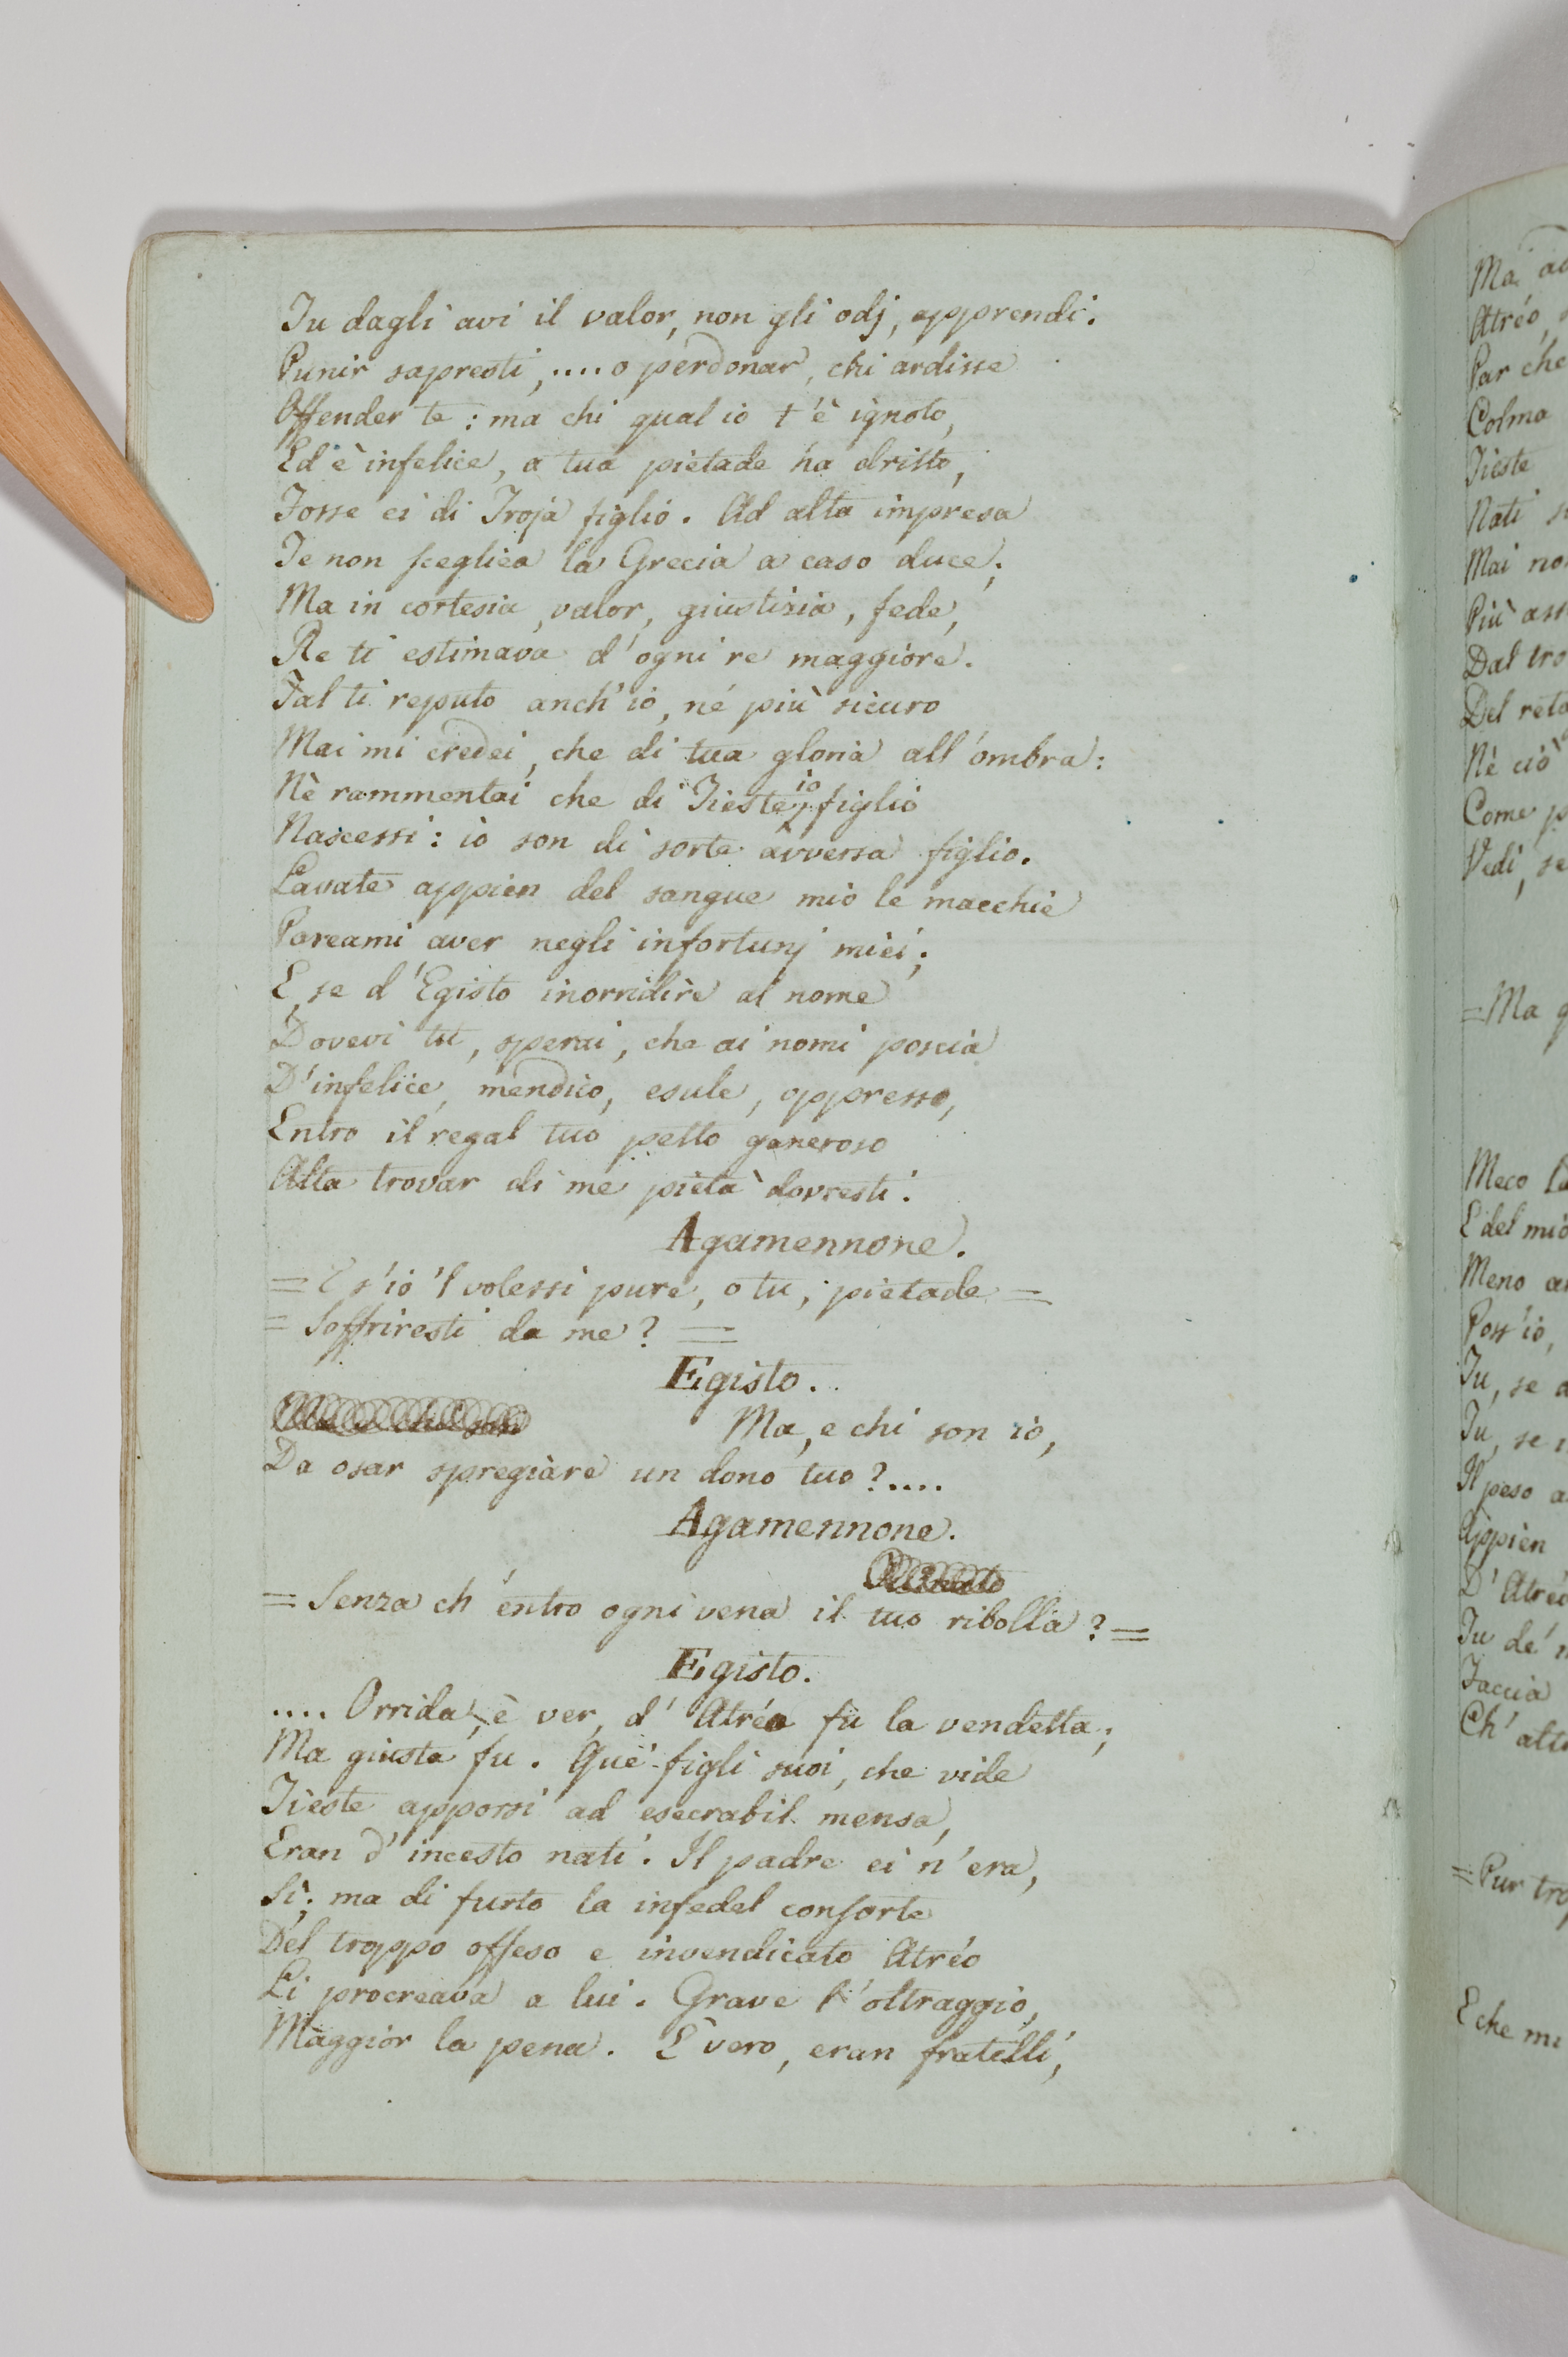 Tu dagli avi il valor, non gli odj, apprendi.
Punir sapresti, .... o perdonar, chi ardisse
Offender te : ma chi qual io t'è ignoto,
Ed è infelice, a tua pietade ha dritto,
Fosse ei di Troja figlio. Ad alta impresa
Te non sceglieа la Grecia a caso duce;
Ma in cortesia, valor, giustizia, fede,
Re ti estimava d'ogni re maggiore.
Tal ti reputo anch'io, né più sicuro
Mai mi credei, che di tua gloria all'ombra:
Nè rammentai che di Tieste io figlio
Nascessi: io son di sorte avversa figlio.
Lavate appien del sangue mio le macchie
Pareami aver negli infortunj miei;
E, se d'Egisto inorridire al nome
Dovevi tu, sperai, che ai nomi poscia
D'infelice, mendico, esule, oppresso,
Entro il regal tuo petto generoso
Alta trovar di me pietà dovresti.
Agamennone.
= E s'io 'l volessi pure, o tu, pietade =
= Soffriresti da me? =
Egisto.
Ma, e chi son io,
Da osar spregiare un dono tuo?....
Agamennone.
= Senza ch'entro ogni vena il tuo ribolla? =
Egisto.
.... Orrida, è ver, d'Atréo fu la vendetta;
Ma giusta fu. Que' figli suoi, che vide
Tieste apporsi ad esecrabil mensa,
Eran d'incesto nati. Il padre ei n'era,
Sì; ma di furto la infedel consorte
Del troppo offeso e invendicato Atréo
Li procreava a lui. Grave l'oltraggio,
Maggior la pena. E' vero, eran fratelli,
Atréo,
Par che
Colma
Tieste
Nati
Mai
Più
Nè ciò
Come
Vedi, se
= Ma
Meco
E del mio
Meno
Poss'io,
Tu, se
Tu, se
Il peso
Appien
D'
Tu de'
Faccia
Ch'
= Pur
E che